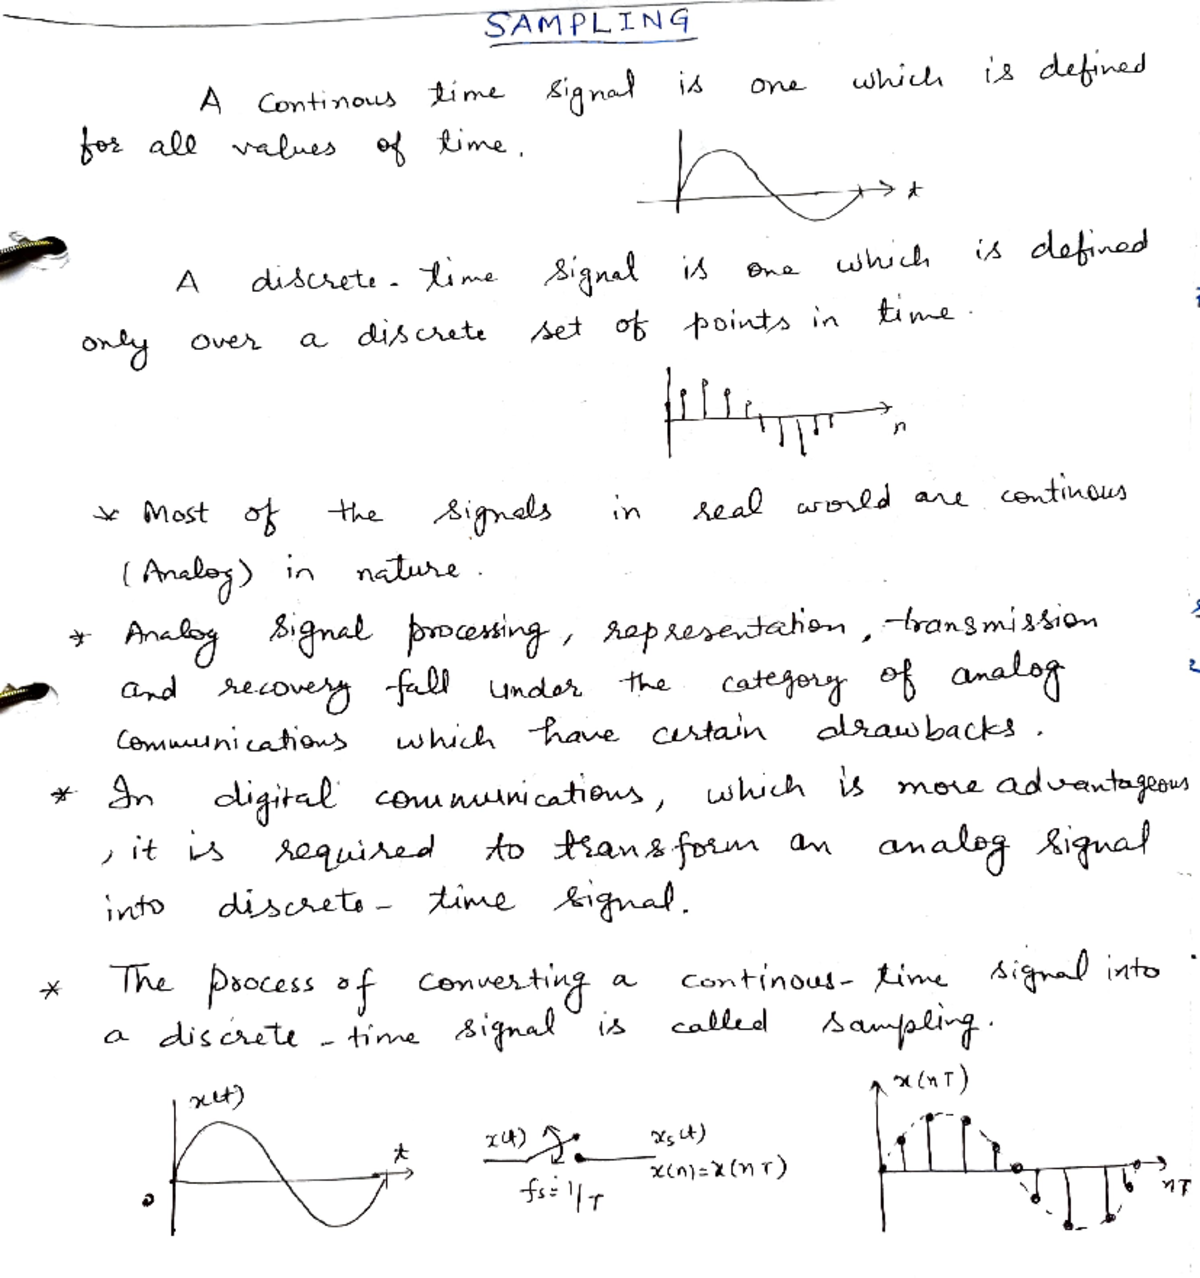 SAMPLING
A Continous time signal is one which is defined
for all values of time.
t
A discrete-time signal is one which is defined
only over a discrete set of points in time.
n
* Most of the signals in real world are continous
(Analog) in nature.
* Analog signal processing, representation, transmission
and recovery fall under the category of analog
communications which have certain drawbacks.
* In digital communications, which is more advantageous
, it is required to transform an analog signal
into discrete-time signal.
* The process of converting a continous-time signal into
a discrete-time signal is called sampling.
x(t)
t
0
x(t)
fs=1/T
xs(t)
x(n)=x(nT)
x(nT)
nT